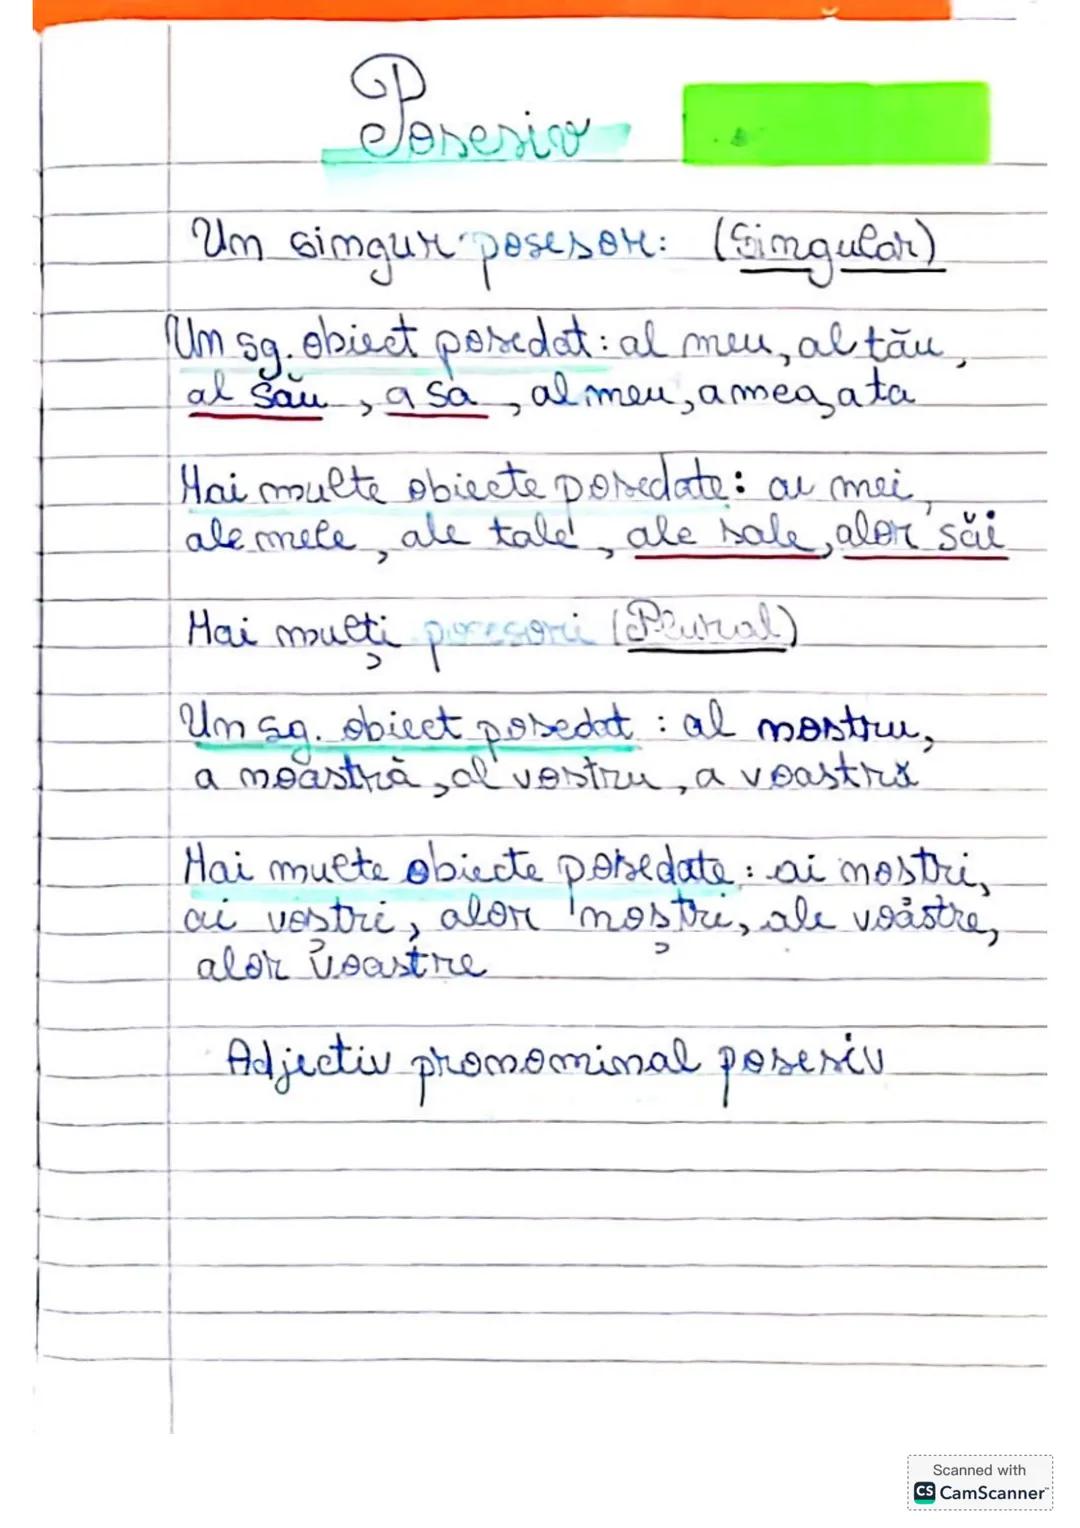 Posesiv
Un singur posesor: (Singular)
Un sg. obiect posedat: al meu, al tău,
al său, a sa, al meu, a mea, a ta
Mai multe obiecte posedate: ai mei,
ale mele, ale tale, ale sale, alor săi
Mai mulți posesori (Plural)
Un sg. obiect posedat: al nostru,
a noastră, al vostru, a voastră
Mai multe obiecte posedate: ai nostri,
ai vostri, alor noștri, ale voastre,
alor voastre
Adjectiv pronominal posesiv
Scanned with
CS CamScanner